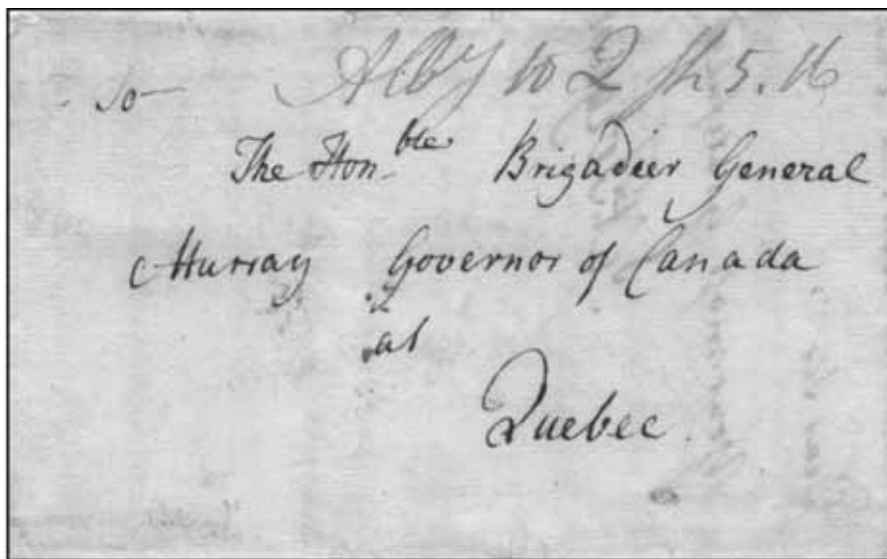 Alby to Q 5.16
To
The Hon.ble Brigadier General
Murray Governor of Canada
at
Quebec.